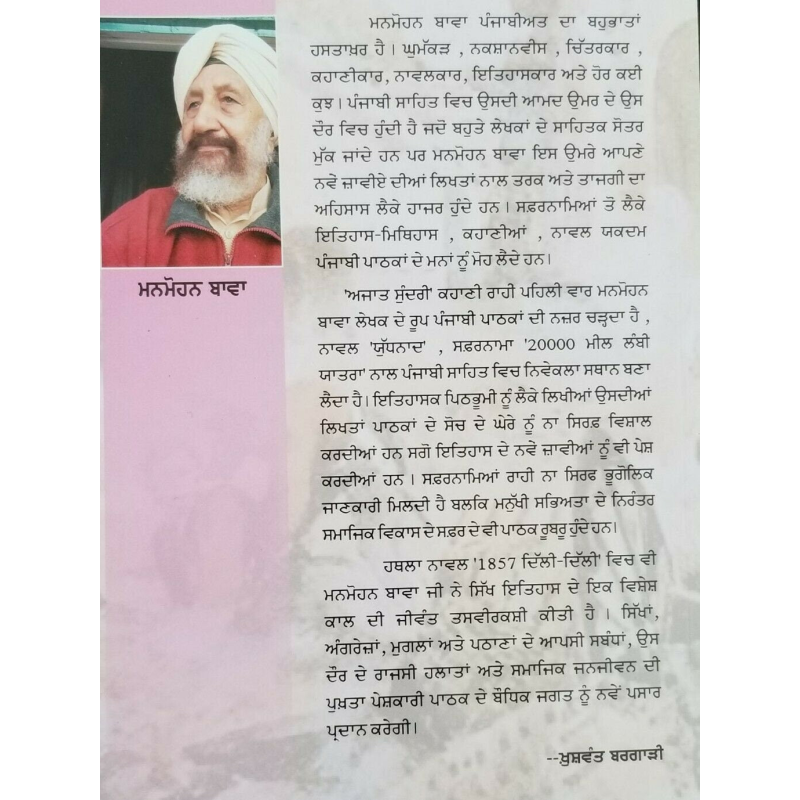 ਮਨਮੋਹਨ ਬਾਵਾ
ਮਨਮੋਹਨ ਬਾਵਾ ਪੰਜਾਬੀਅਤ ਦਾ ਬਹੁਭਾਤਾਂ
ਹਸਤਾਖ਼ਰ ਹੈ। ਘੁਮੱਕੜ , ਨਕਸ਼ਾਨਵੀਸ , ਚਿੱਤਰਕਾਰ ,
ਕਹਾਣੀਕਾਰ, ਨਾਵਲਕਾਰ, ਇਤਿਹਾਸਕਾਰ ਅਤੇ ਹੋਰ ਕਈ
ਕੁਝ। ਪੰਜਾਬੀ ਸਾਹਿਤ ਵਿਚ ਉਸਦੀ ਆਮਦ ਉਮਰ ਦੇ ਉਸ
ਦੌਰ ਵਿਚ ਹੁੰਦੀ ਹੈ ਜਦੋ ਬਹੁਤੇ ਲੇਖਕਾਂ ਦੇ ਸਾਹਿਤਕ ਸੋਤਰ
ਮੁੱਕ ਜਾਂਦੇ ਹਨ ਪਰ ਮਨਮੋਹਨ ਬਾਵਾ ਇਸ ਉਮਰੇ ਆਪਣੇ
ਨਵੇਂ ਜ਼ਾਵੀਏ ਦੀਆਂ ਲਿਖਤਾਂ ਨਾਲ ਤਰਕ ਅਤੇ ਤਾਜਗੀ ਦਾ
ਅਹਿਸਾਸ ਲੈਕੇ ਹਾਜਰ ਹੁੰਦੇ ਹਨ। ਸਫ਼ਰਨਾਮਿਆਂ ਤੋ ਲੈਕੇ
ਇਤਿਹਾਸ-ਮਿਥਿਹਾਸ , ਕਹਾਣੀਆਂ , ਨਾਵਲ ਯਕਦਮ
ਪੰਜਾਬੀ ਪਾਠਕਾਂ ਦੇ ਮਨਾਂ ਨੂੰ ਮੋਹ ਲੈਂਦੇ ਹਨ।
'ਅਜਾਤ ਸੁੰਦਰੀ' ਕਹਾਣੀ ਰਾਹੀ ਪਹਿਲੀ ਵਾਰ ਮਨਮੋਹਨ
ਬਾਵਾ ਲੇਖਕ ਦੇ ਰੂਪ ਪੰਜਾਬੀ ਪਾਠਕਾਂ ਦੀ ਨਜ਼ਰ ਚੜ੍ਹਦਾ ਹੈ ,
ਨਾਵਲ 'ਯੁੱਧਨਾਦ' , ਸਫ਼ਰਨਾਮਾ '20000 ਮੀਲ ਲੰਬੀ
ਯਾਤਰਾ' ਨਾਲ ਪੰਜਾਬੀ ਸਾਹਿਤ ਵਿਚ ਨਿਵੇਕਲਾ ਸਥਾਨ ਬਣਾ
ਲੈਂਦਾ ਹੈ। ਇਤਿਹਾਸਕ ਪਿਠਭੂਮੀ ਨੂੰ ਲੈਕੇ ਲਿਖੀਆਂ ਉਸਦੀਆਂ
ਲਿਖਤਾਂ ਪਾਠਕਾਂ ਦੇ ਸੋਚ ਦੇ ਘੇਰੇ ਨੂੰ ਨਾ ਸਿਰਫ਼ ਵਿਸ਼ਾਲ
ਕਰਦੀਆਂ ਹਨ ਸਗੋ ਇਤਿਹਾਸ ਦੇ ਨਵੇਂ ਜ਼ਾਵੀਆਂ ਨੂੰ ਵੀ ਪੇਸ਼
ਕਰਦੀਆਂ ਹਨ । ਸਫ਼ਰਨਾਮਿਆਂ ਰਾਹੀ ਨਾ ਸਿਰਫ ਭੂਗੋਲਿਕ
ਜਾਣਕਾਰੀ ਮਿਲਦੀ ਹੈ ਬਲਕਿ ਮਨੁੱਖੀ ਸਭਿਅਤਾ ਦੇ ਨਿਰੰਤਰ
ਸਮਾਜਿਕ ਵਿਕਾਸ ਦੇ ਸਫ਼ਰ ਦੇ ਵੀ ਪਾਠਕ ਰੂਬਰੂ ਹੁੰਦੇ ਹਨ।
ਹਥਲਾ ਨਾਵਲ '1857 ਦਿੱਲੀ-ਦਿੱਲੀ' ਵਿਚ ਵੀ
ਮਨਮੋਹਨ ਬਾਵਾ ਜੀ ਨੇ ਸਿੱਖ ਇਤਿਹਾਸ ਦੇ ਇਕ ਵਿਸ਼ੇਸ਼
ਕਾਲ ਦੀ ਜੀਵੰਤ ਤਸਵੀਰਕਸ਼ੀ ਕੀਤੀ ਹੈ । ਸਿੱਖਾਂ,
ਅੰਗਰੇਜ਼ਾਂ, ਮੁਗਲਾਂ ਅਤੇ ਪਠਾਣਾਂ ਦੇ ਆਪਸੀ ਸਬੰਧਾਂ, ਉਸ
ਦੌਰ ਦੇ ਰਾਜਸੀ ਹਲਾਤਾਂ ਅਤੇ ਸਮਾਜਿਕ ਜਨਜੀਵਨ ਦੀ
ਪੁਖ਼ਤਾ ਪੇਸ਼ਕਾਰੀ ਪਾਠਕ ਦੇ ਬੌਧਿਕ ਜਗਤ ਨੂੰ ਨਵੇਂ ਪਸਾਰ
ਪ੍ਰਦਾਨ ਕਰੇਗੀ।
--ਖ਼ੁਸ਼ਵੰਤ ਬਰਗਾੜੀ